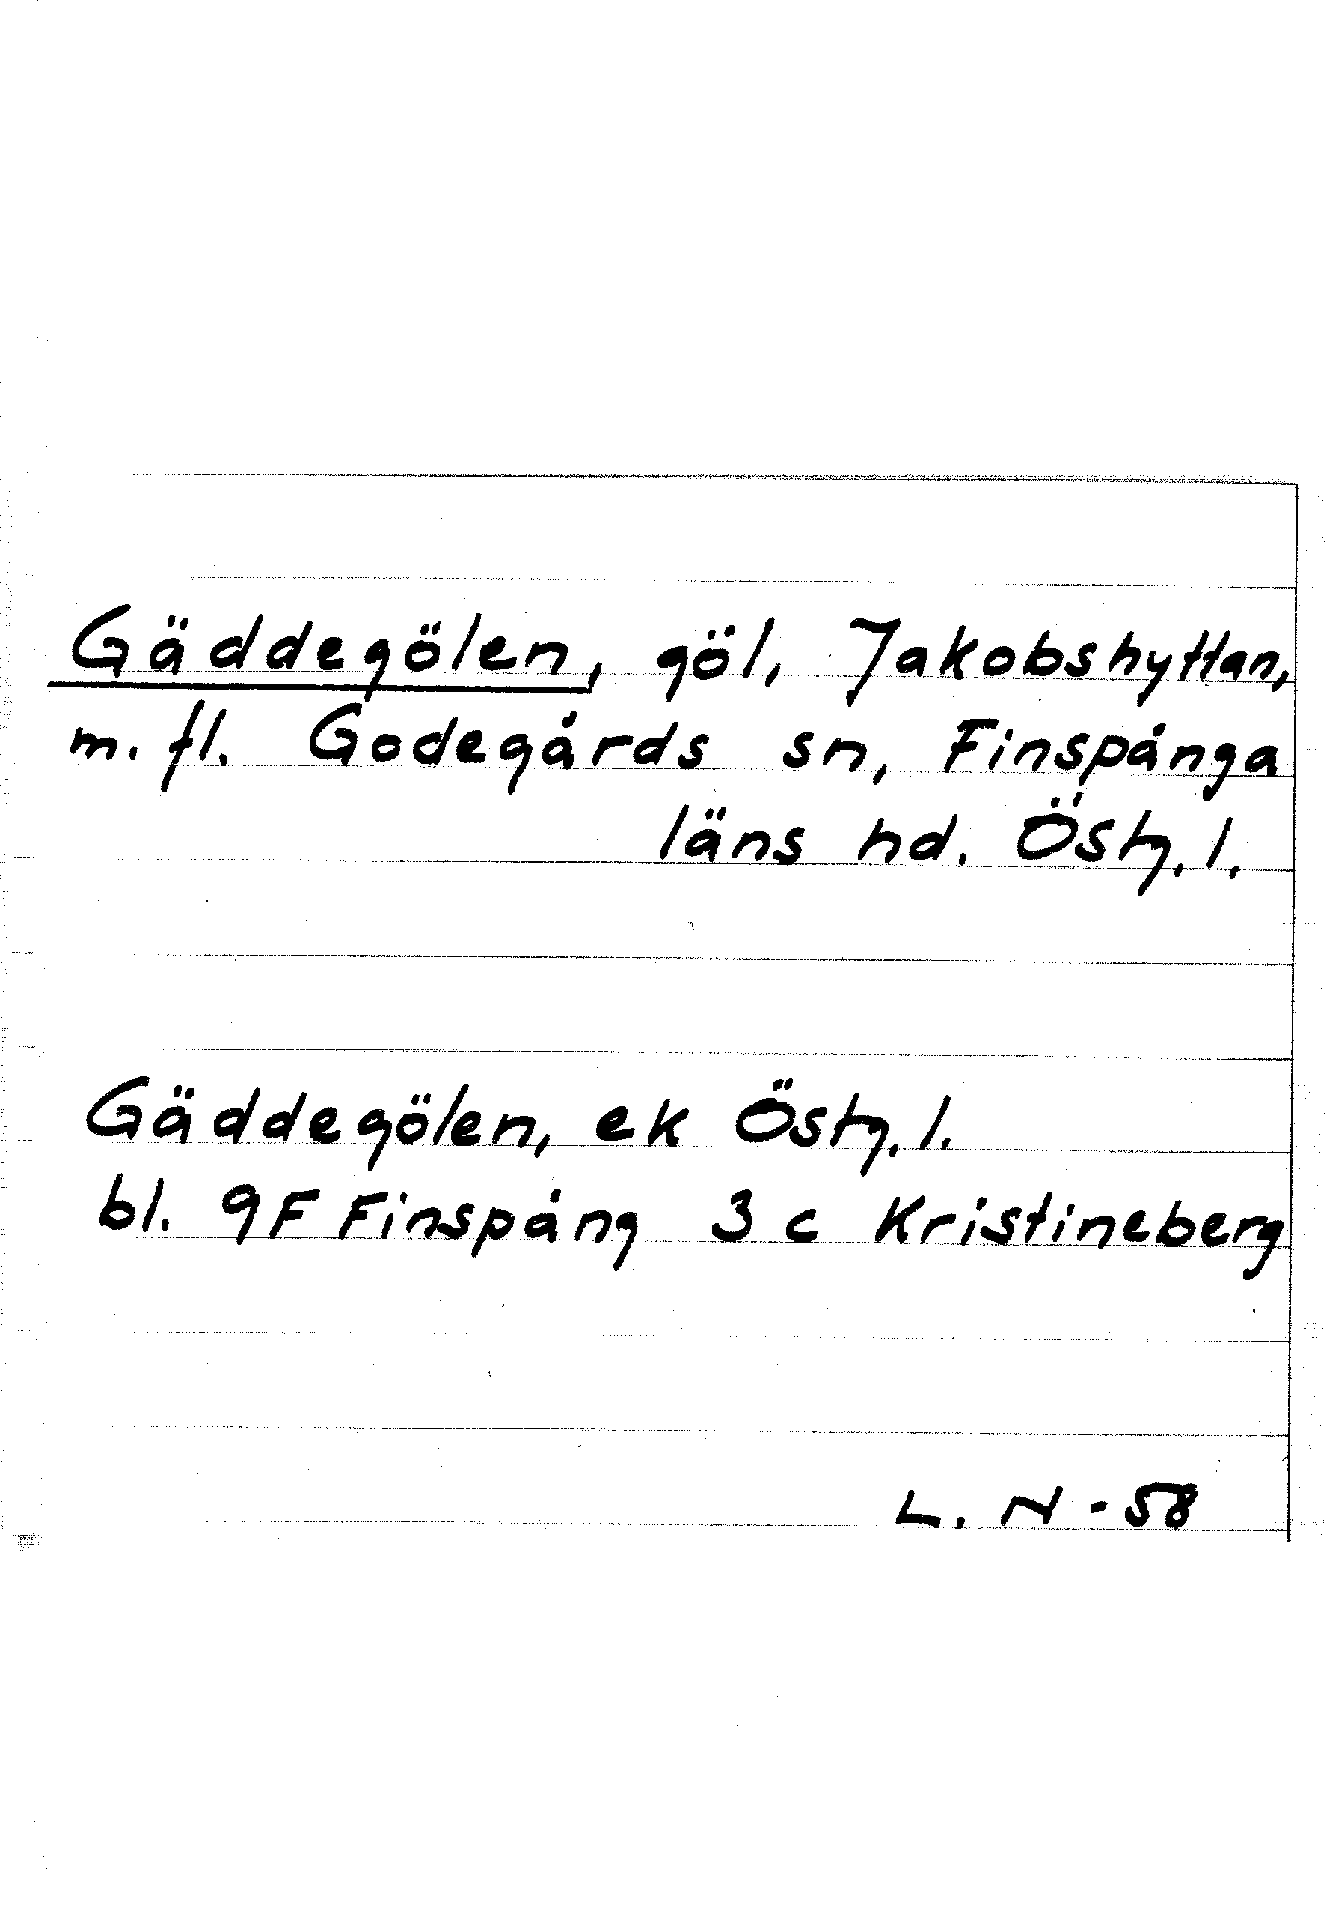 Gäddegölen, göl, Jakobshyttan,
m. fl. Godegårds sn, Finspånga
läns hd. Östg. l.
Gäddegölen, ek Östg. l.
bl. 9F Finspång 3 c Kristineberg
L. N - 58